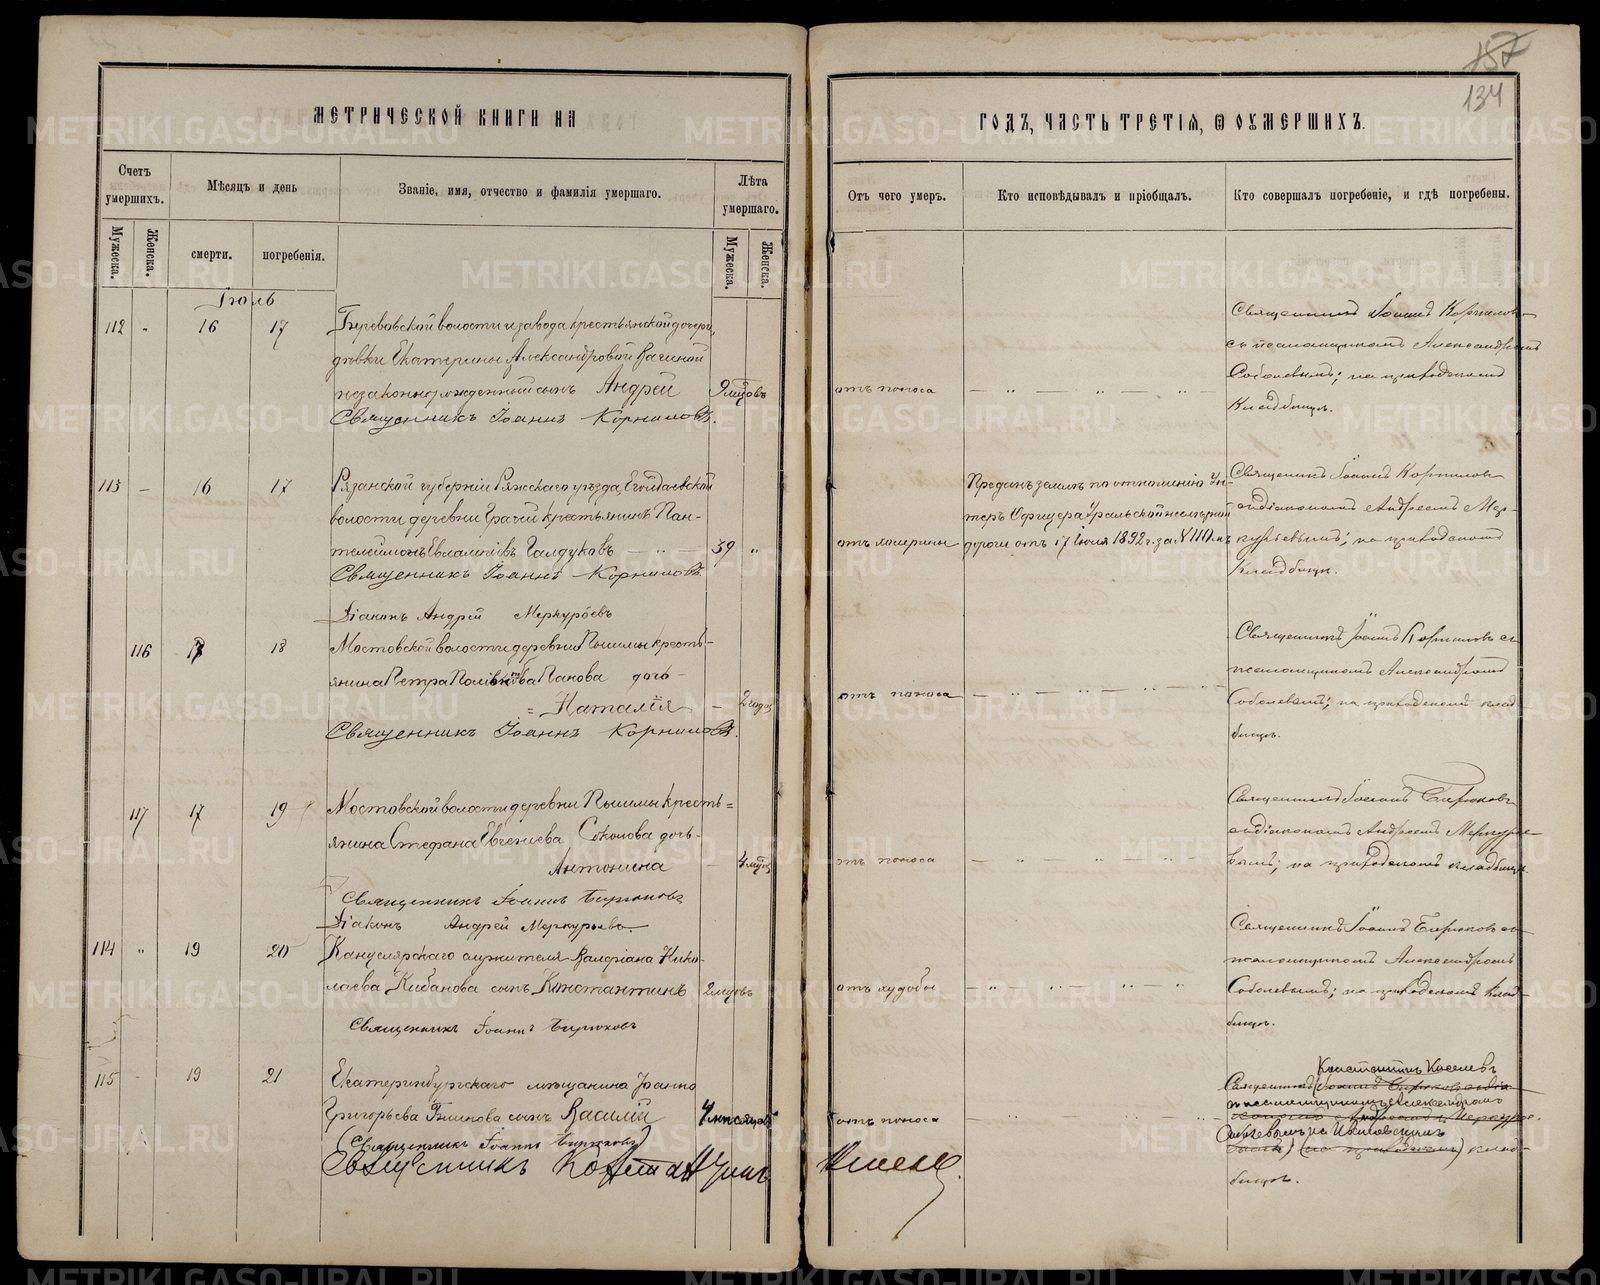 МЕТРИЧЕСКОЙ КНИГИ НА
ГОДЪ, ЧАСТЬ ТРЕТІЯ, Ѿ ОУМЕРШИХЪ.
157
134
Счетъ умершихъ.
Мѣсяцъ и день
Званіе, имя, отчество и фамилія умершаго.
Лѣта умершаго.
Отъ чего умеръ.
Кто исповѣдывалъ и пріобщалъ.
Кто совершалъ погребеніе, и гдѣ погребены.
Мужеска.
Женска.
смерти.
погребенія.
Мужеска.
Женска.
Іюль
112 " 16 17
волости и завода крестьянской дочери,
дѣвки Екатерины Александровой
незаконнорожденный сынъ Андрей
9 мцовъ
отъ поноса
Священникъ Іоаннъ Корниловъ
съ псаломщикомъ Александромъ
Соболевымъ; на приходскомъ
кладбищѣ.
Священникъ Іоаннъ Корниловъ.
113 — 16 17
Рязанской губерніи Ряжскаго уѣзда,
волости деревни Грачи крестьянинъ Пан-
телеймонъ Галдуковъ
39 "
отъ холерины
Преданъ землѣ по отношенію Ун-
теръ Офицера Уральской желѣзной
дороги отъ 17 Іюля 1892 г. за №
Священникъ Іоаннъ Корниловъ
съ діакономъ Андреемъ Мер-
курьевымъ; на приходскомъ
кладбищѣ.
Священникъ Іоаннъ Корниловъ.
Діаконъ Андрей Меркурьевъ
116 17 18
Мостовской волости деревни Пышмы кресть-
янина Петра Панова дочь
Наталія
2 года
отъ поноса
Священникъ Іоаннъ Корниловъ съ
псаломщикомъ Александромъ
Соболевымъ; на приходскомъ клад-
бищѣ.
Священникъ Іоаннъ Корниловъ.
117 17 19
Мостовской волости деревни Пышмы кресть=
янина Стефана Евгеніева Соколова дочь
Антонина
4 мцовъ
отъ поноса
Священникъ Іоаннъ Бирюковъ
съ діакономъ Андреемъ Меркурье-
вымъ; на приходскомъ кладбищѣ.
Священникъ Іоаннъ Бирюковъ
Діаконъ Андрей Меркурьевъ
114 " 19 20
Канцелярскаго служителя Валеріана Нико-
лаева Кибанова сынъ Константинъ
2 мцовъ
отъ худобы
Священникъ Іоаннъ Бирюковъ съ
псаломщикомъ Александромъ
Соболевымъ; на приходскомъ клад-
бищѣ.
Священникъ Іоаннъ Бирюковъ
115 - 19 21
Екатеринбургскаго мѣщанина Іоанна
Григорьева сынъ Василій
4 мѣсяцовъ
отъ поноса
Константинъ Киселевъ
Священникъ Іоаннъ Бирюковъ съ діа
псаломщикомъ Александромъ
Соболевымъ на Ивановскомъ
(на приходскомъ) клад-
бищѣ.
(Священникъ Іоаннъ Бирюковъ)
Священникъ Константинъ Киселевъ.
METRIKI.GASO-URAL.RU